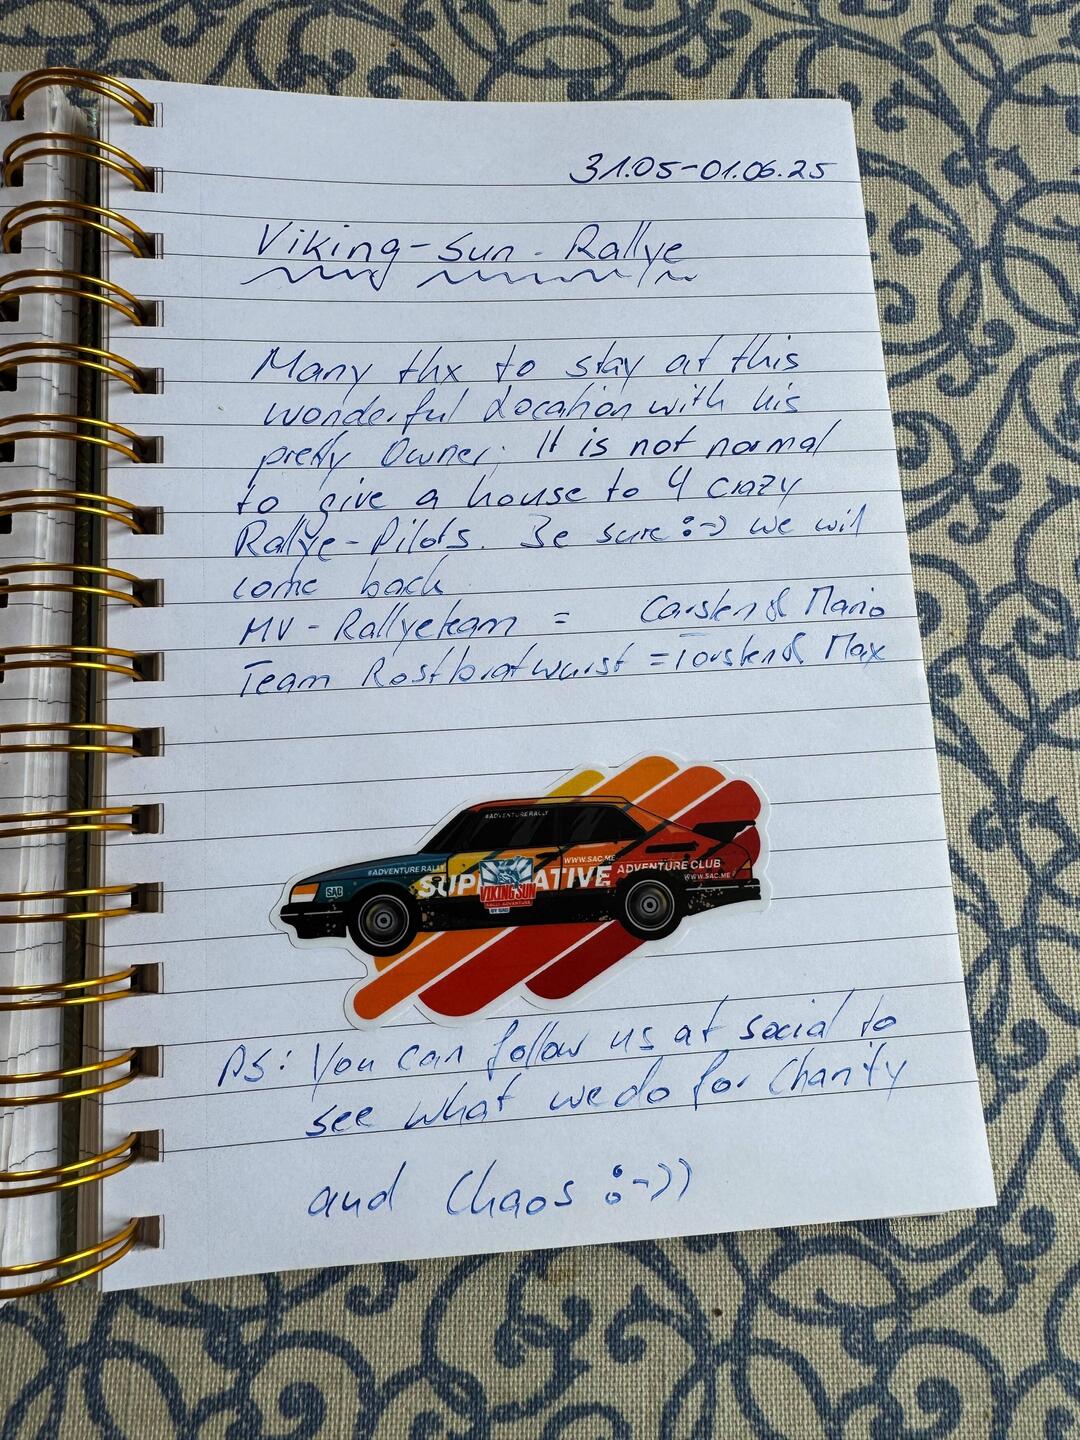 31.05-01.06.25
Viking-Sun-Rallye
Many thx to stay at this
wonderful Location with his
pretty Owner. It is not normal
to give a house to 4 crazy
Rallye-Pilots. Be sure :-) we will
come back
MV-Rallyeteam = Carsten & Mario
Team Rostbratwurst = Torsten & Max
#ADVENTURERALLY
WWW.SAC.ME
#ADVENTURERALLY
ADVENTURE CLUB
SAC
SUP ATIVE
WWW.SAC.ME
VIKING SUN
RALLY ADVENTURE
BY SAC
PS: You can follow us at social to
see what we do for Charity
and Chaos :-))